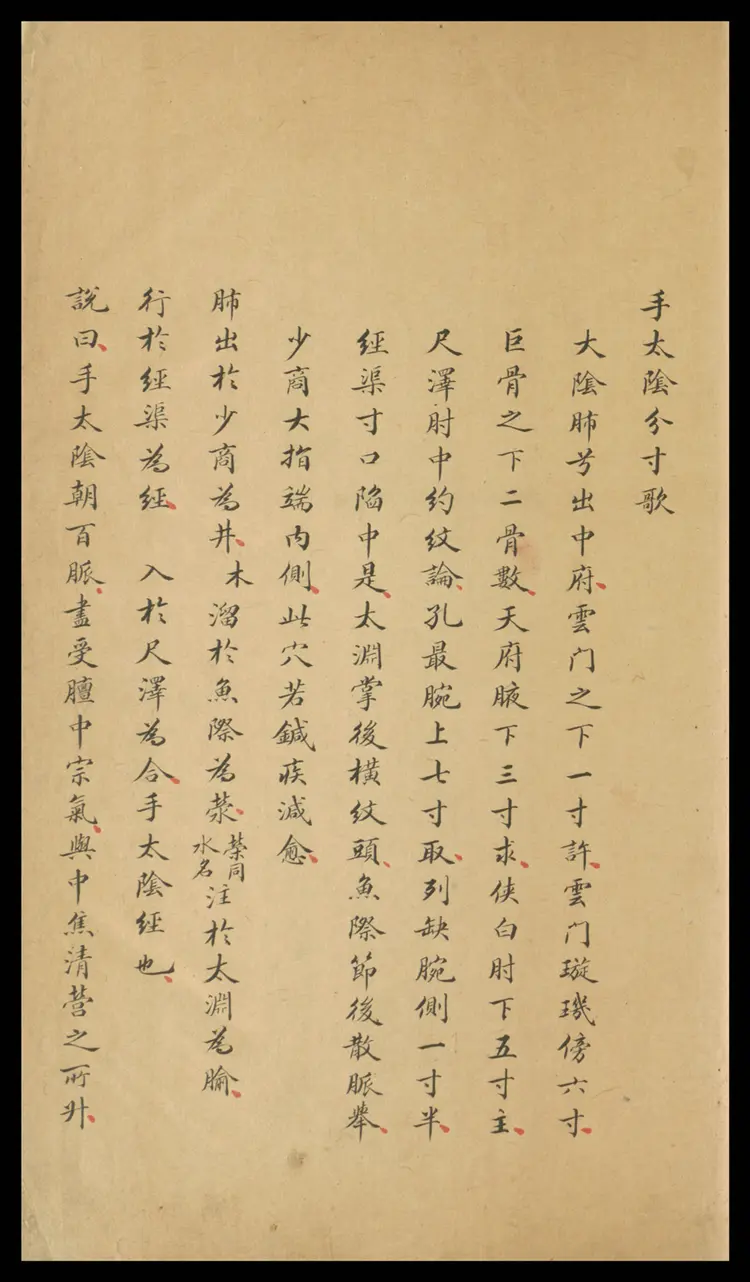 手太陰分寸歌
大陰肺兮出中府、雲门之下一寸許、雲门璇璣傍六寸、
巨骨之下二骨數、天府腋下三寸求、侠白肘下五寸主、
尺澤肘中約紋論、孔最腕上七寸取、列缺腕側一寸半、
經渠寸口陷中是、太淵掌後横紋頭、魚際節後散脈舉、
少商大指端内側、此穴若鍼疾減愈、
肺出於少商為井、木溜於魚際為滎、滎同水名注於太淵為腧、
行於經渠為經、入於尺澤為合、手太陰經也、
說曰、手太陰朝百脈、盡受膻中宗氣、與中焦清營之所升、